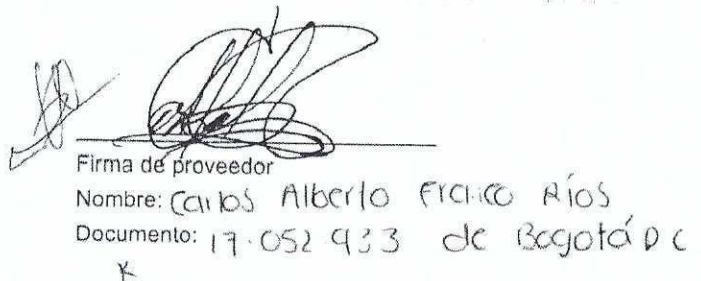 Firma de proveedor
Nombre: Carlos Alberto Franco Ríos
Documento: 17.052 933 de Bogotá D C
K